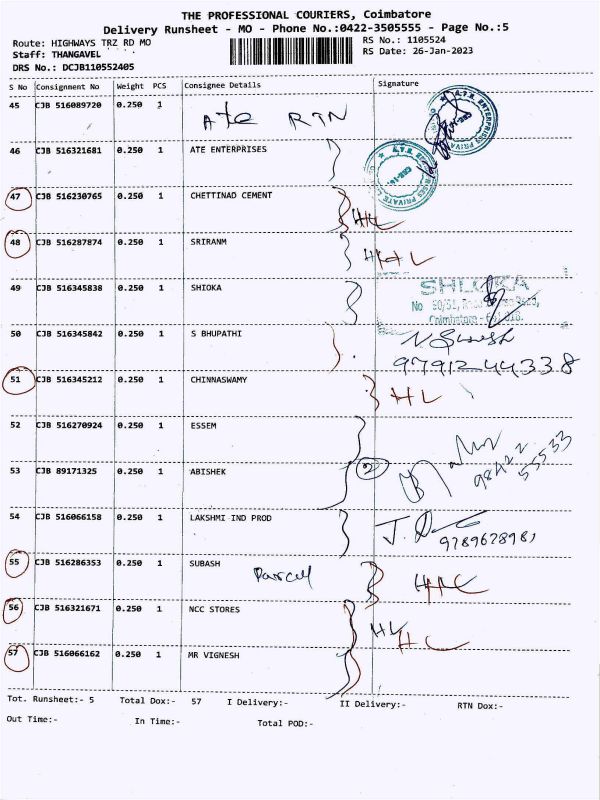 THE PROFESSIONAL COURIERS, Coimbatore
Delivery Runsheet - MO - Phone No.:0422-3505555 - Page No.:5
Route: HIGHWAYS TRZ RD MO
RS No.: 1105524
Staff: THANGAVEL
RS Date: 26-Jan-2023
DRS No.: DCJB110552405
S No Consignment No Weight PCS Consignee Details Signature
45 CJB 516089720 0.250 1 ATE RTN
46 CJB 516321681 0.250 1 ATE ENTERPRISES
47 CJB 516230765 0.250 1 CHETTINAD CEMENT HL
48 CJB 516287874 0.250 1 SRIRANM HL
49 CJB 516345838 0.250 1 SHIOKA
SHLOKA
50 CJB 516345842 0.250 1 S BHUPATHI
9791244338
51 CJB 516345212 0.250 1 CHINNASWAMY HL
52 CJB 516270924 0.250 1 ESSEM
98422 55533
53 CJB 89171325 0.250 1 ABISHEK 2
54 CJB 516066158 0.250 1 LAKSHMI IND PROD
9789678981
55 CJB 516286353 0.250 1 SUBASH Parcel
56 CJB 516321671 0.250 1 NCC STORES HL
57 CJB 516066162 0.250 1 MR VIGNESH
Tot. Runsheet:- 5 Total Dox:- 57 I Delivery:- II Delivery:- RTN Dox:-
Out Time:- In Time:- Total POD:-